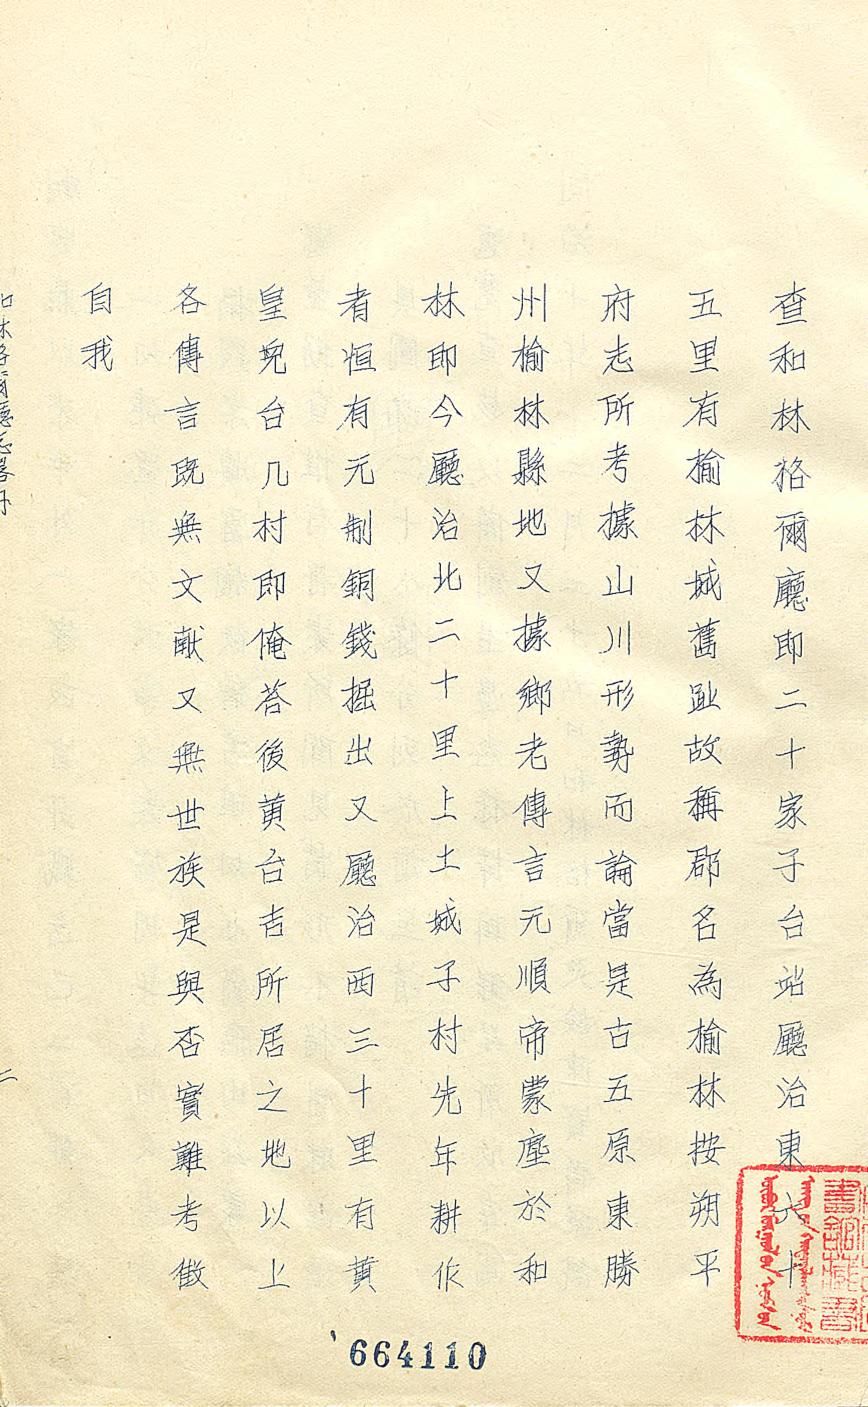 查和林格爾廳即二十家子台站廳治東六十
五里有榆林城舊趾故稱郡名為榆林按朔平
府志所考據山川形勢而論當是古五原東勝
州榆林縣地又據鄉老傳言元順帝蒙塵於和
林即今廳治北二十里上土城子村先年耕作
者恒有元制銅錢掘出又廳治西三十里有黃
皇兒台几村即俺荅後黃台吉所居之地以上
各傳言既無文献又無世族是與否實難考徵
自我
二
664110